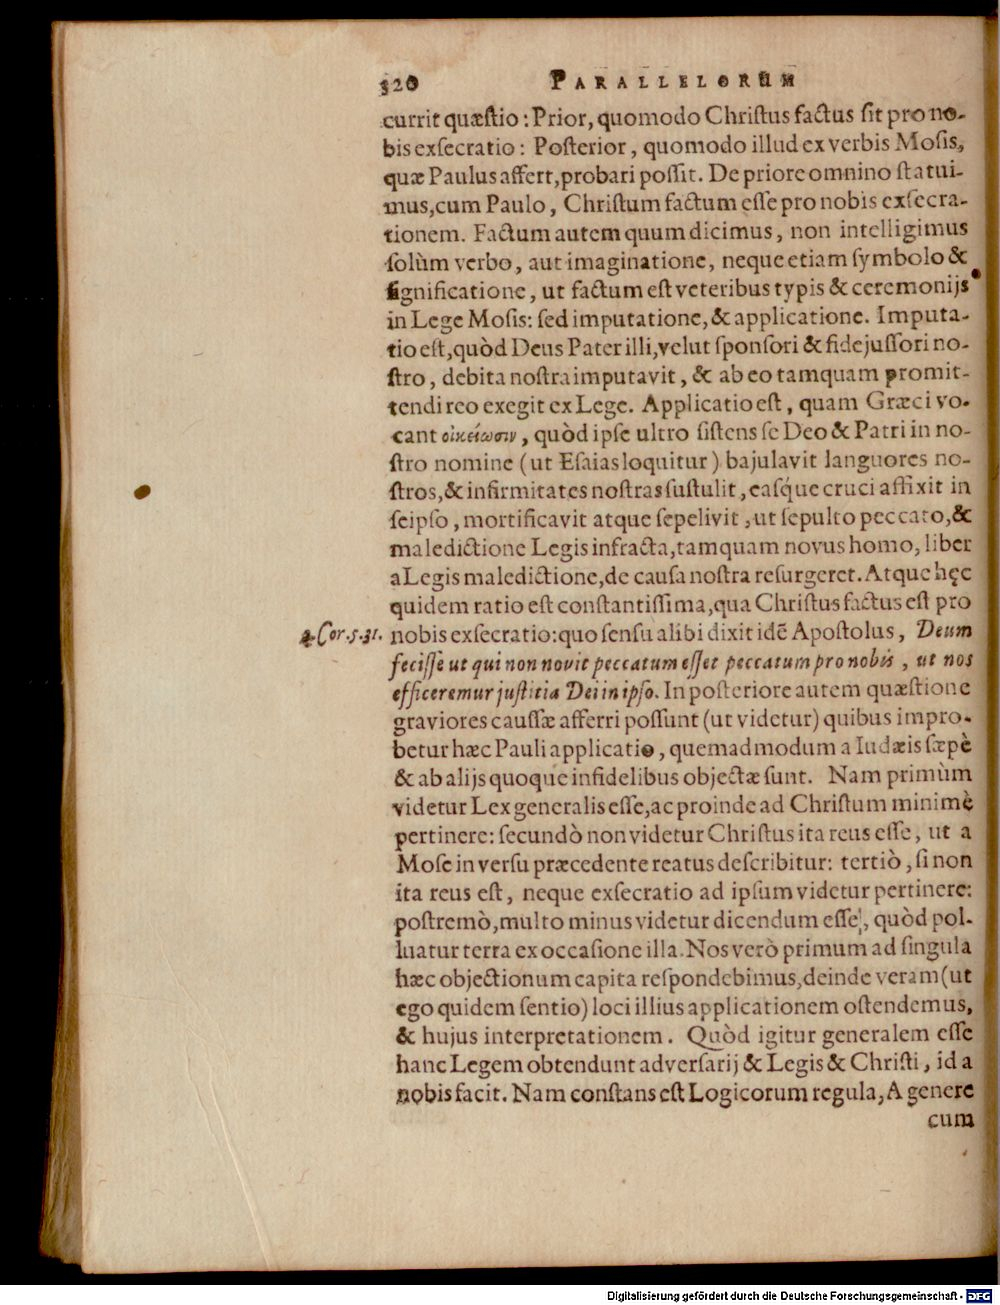 320 PARALLELORUM
currit quæſtio: Prior, quomodo Chriſtus factus ſit pro no-
bis exſecratio: Poſterior, quomodo illud ex verbis Moſis,
quæ Paulus affert, probari poſſit. De priore omnino ſtatui-
mus, cum Paulo, Chriſtum factum eſſe pro nobis exſecra-
tionem. Factum autem quum dicimus, non intelligimus
ſolùm verbo, aut imaginatione, neque etiam ſymbolo &
ſignificatione, ut factum eſt veteribus typis & ceremonijs
in Lege Moſis: ſed imputatione, & applicatione. Imputa-
tio eſt, quòd Deus Pater illi, velut ſponſori & fidejuſſori no-
ſtro, debita noſtra imputavit, & ab eo tamquam promit-
tendi reo exegit ex Lege. Applicatio eſt, quam Græci vo-
cant οἰκείωσιν, quòd ipſe ultro ſiſtens ſe Deo & Patri in no-
ſtro nomine (ut Eſaias loquitur) bajulavit languores no-
ſtros, & infirmitates noſtras ſuſtulit, eaſq́ue cruci affixit in
ſeipſo, mortificavit atque ſepelivit, ut ſepulto peccato, &
maledictione Legis infracta, tamquam novus homo, liber
a Legis maledictione, de cauſa noſtra reſurgeret. Atque hęc
quidem ratio eſt conſtantiſſima, qua Chriſtus factus eſt pro
2. Cor. 5. 31. nobis exſecratio: quo ſenſu alibi dixit idẽ Apoſtolus, Deum
feciſſe ut qui non novit peccatum eſſet peccatum pro nobis, ut nos
efficeremur juſtitia Dei in ipſo. In poſteriore autem quæſtione
graviores cauſſæ afferri poſſunt (ut videtur) quibus impro-
betur hæc Pauli applicatio, quemadmodum a Iudæis ſæpè
& ab alijs quoque infidelibus objectæ ſunt. Nam primùm
videtur Lex generalis eſſe, ac proinde ad Chriſtum minimè
pertinere: ſecundò non videtur Chriſtus ita reus eſſe, ut a
Moſe in verſu præcedente reatus deſcribitur: tertiò, ſi non
ita reus eſt, neque exſecratio ad ipſum videtur pertinere:
poſtremò, multo minus videtur dicendum eſſe, quòd pol-
luatur terra ex occaſione illa. Nos verò primum ad ſingula
hæc objectionum capita reſpondebimus, deinde veram (ut
ego quidem ſentio) loci illius applicationem oſtendemus,
& hujus interpretationem. Quòd igitur generalem eſſe
hanc Legem obtendunt adverſarij & Legis & Chriſti, id a
nobis facit. Nam conſtans eſt Logicorum regula, A genere
cum
Digitalisierung gefördert durch die Deutsche Forschungsgemeinschaft - DFG